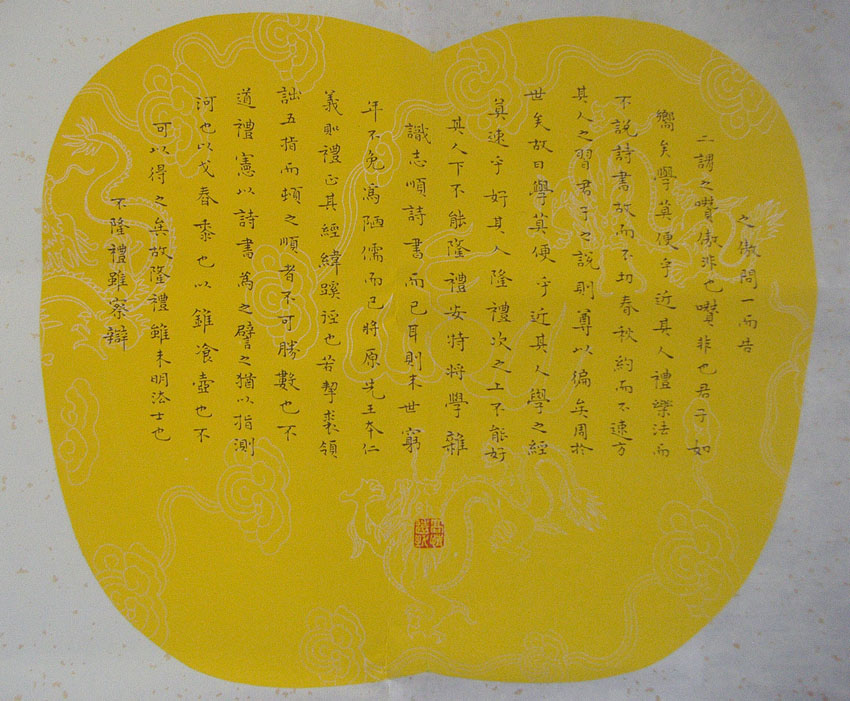 之傲問一而告
二謂之囋傲非也囋非也君子如
嚮矣學莫便乎近其人禮樂法而
不說詩書故而不切春秋約而不速方
其人之習君子之說則尊以徧矣周於
世矣故曰學莫便乎近其人學之經
莫速乎好其人隆禮次之上不能好
其人下不能隆禮安特將學雜
識志順詩書而已耳則末世窮
年不免為陋儒而已將原先王本仁
義則禮正其經緯蹊徑也若挈裘領
詘五指而頓之順者不可勝數也不
道禮憲以詩書為之譬之猶以指測
河也以戈舂黍也以錐飡壺也不
可以得之矣故隆禮雖未明法士也
不隆禮雖察辯